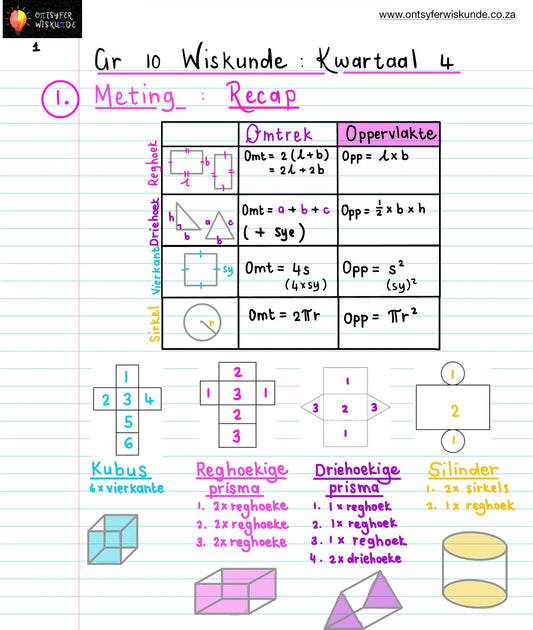 ONTSYFER
WISKUNDE
www.ontsyferwiskunde.co.za
1
Gr 10 Wiskunde : Kwartaal 4
1. Meting : Recap
Omtrek Oppervlakte
Reghoek
l
b
Omt = 2(l+b)
= 2l + 2b
Opp = l x b
Driehoek
h
b
a
c
b
Omt = a + b + c
(+ sye)
Opp = 1/2 x b x h
Vierkant
sy
Omt = 4s
(4 x sy)
Opp = s²
(sy)²
Sirkel
r
Omt = 2πr
Opp = πr²
1
2 3 4
5
6
2
1 3 1
2
3
1
3 2 3
1
1
2
1
Kubus
6 x vierkante
Reghoekige
prisma
1. 2x reghoeke
2. 2x reghoeke
3. 2x reghoeke
Driehoekige
prisma
1. 1 x reghoek
2. 1x reghoek
3. 1 x reghoek
4. 2x driehoeke
Silinder
1. 2x sirkels
2. 1x reghoek